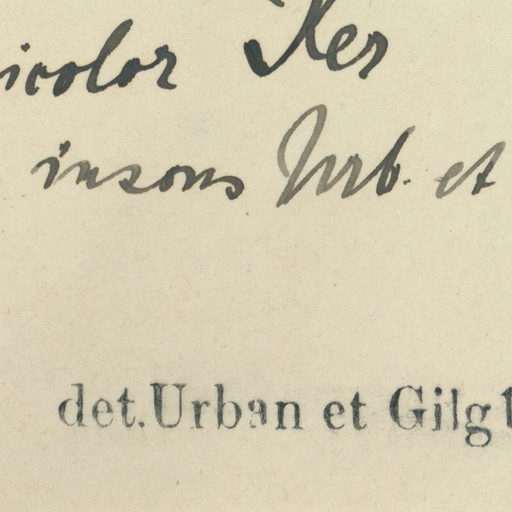 icolor Ker
insons Urb. et
det. Urban et Gilg